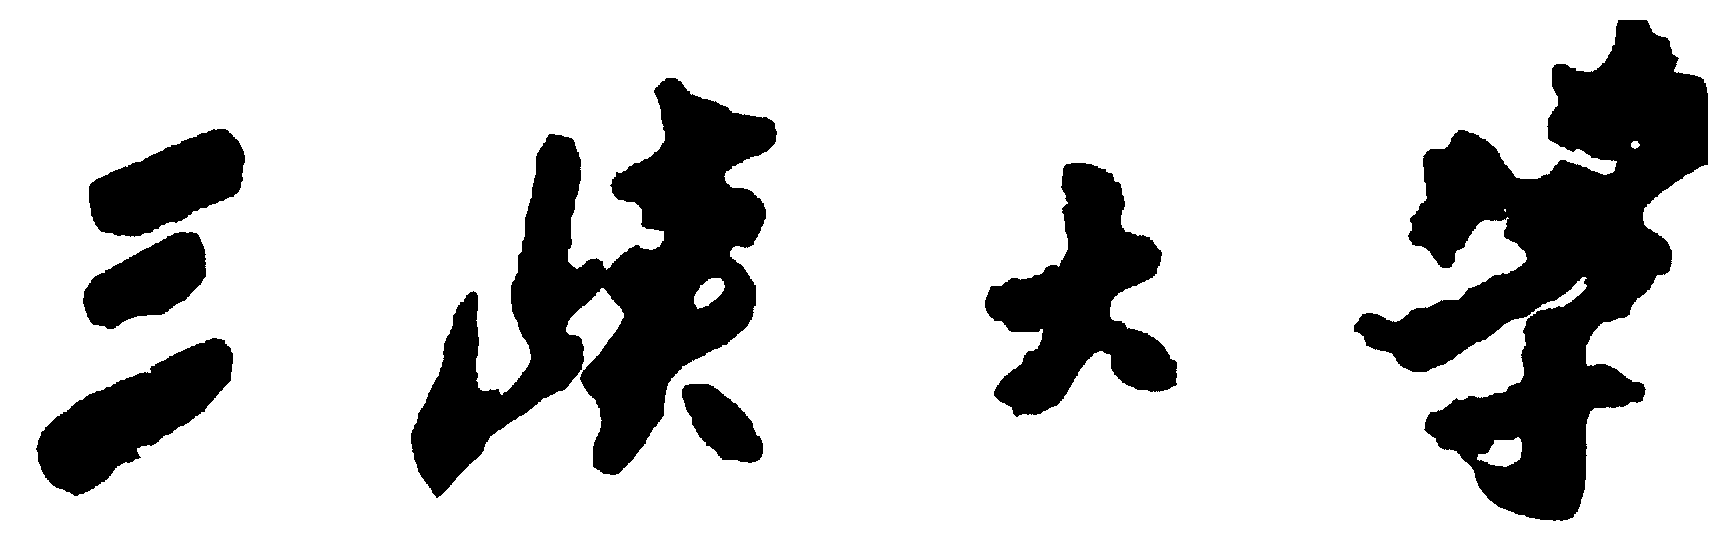 三峡大学